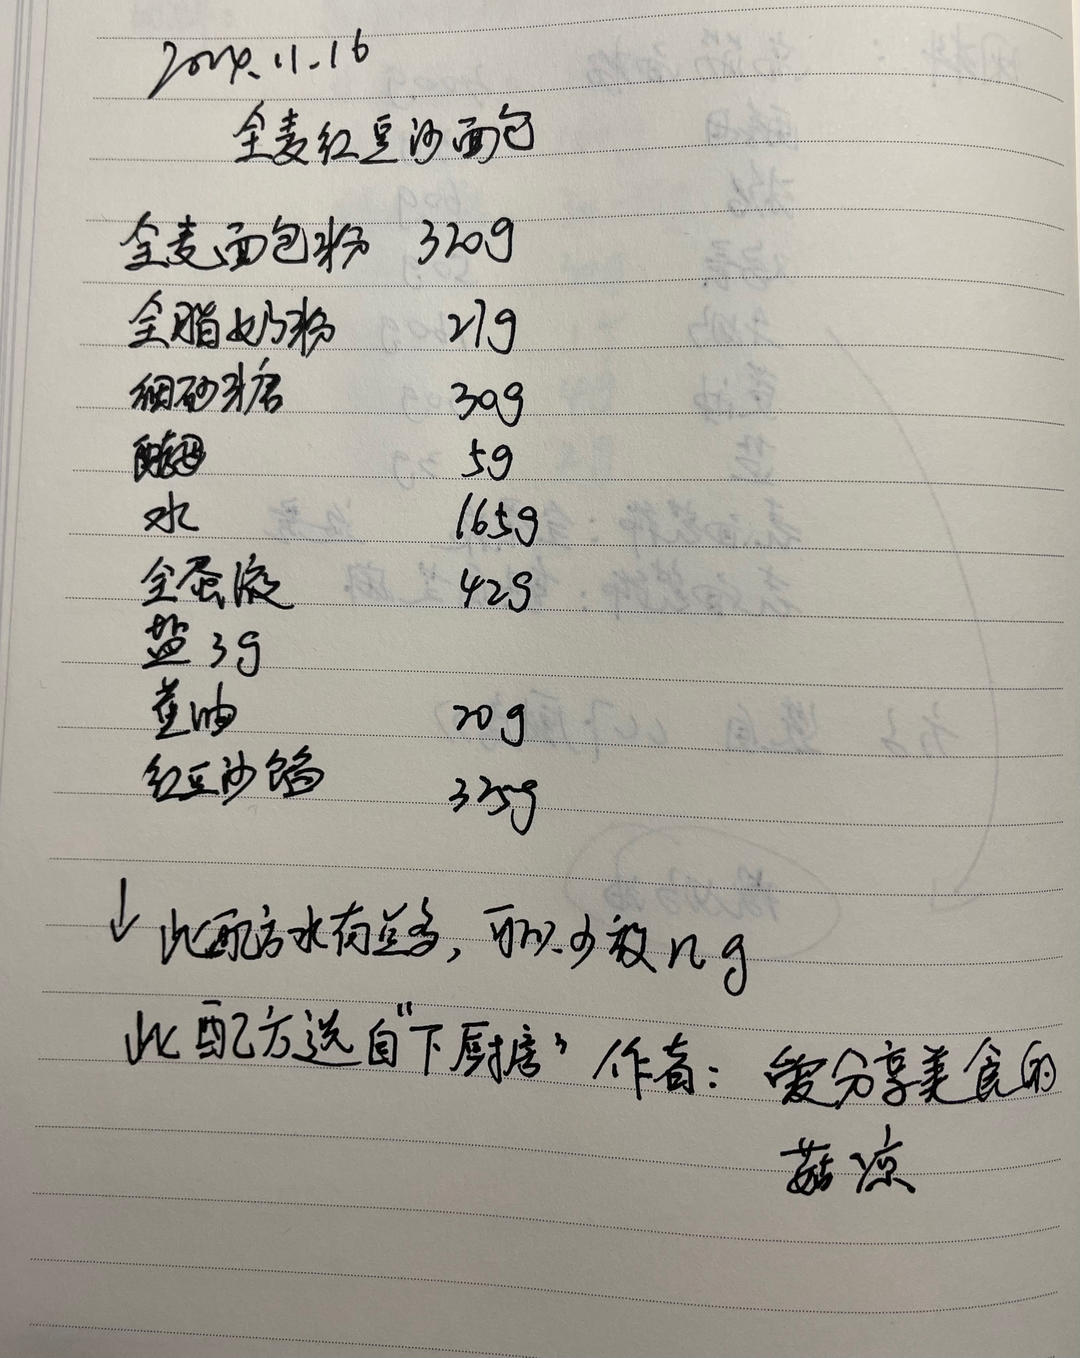 2024.11.16
全麦红豆沙面包
全麦面包粉 320g
全脂奶粉 21g
细砂糖 30g
酵母 5g
水 165g
全蛋液 42g
盐 3g
黄油 20g
红豆沙馅 325g
↓ 此配方水有点多, 可以少放 g
此配方选自“下厨房” 作者: 爱分享美食的
菇凉